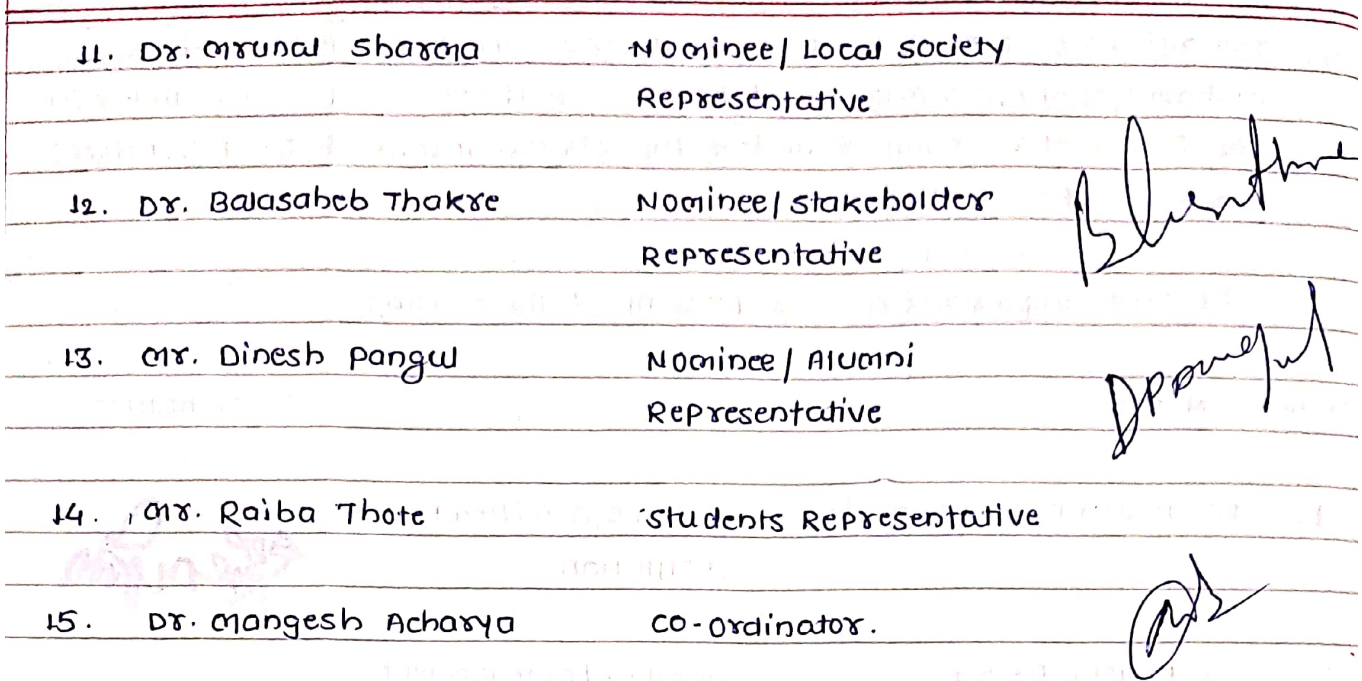 11. Dr. Mrunal Sharma Nominee/ Local society
Representative
12. Dr. Balasaheb Thakre Nominee/ stakeholder
Representative
13. Mr. Dinesh Pangul Nominee / Alumni
Representative
14. Mr. Raiba Thote Students Representative
15. Dr. Mangesh Acharya CO-ordinator.